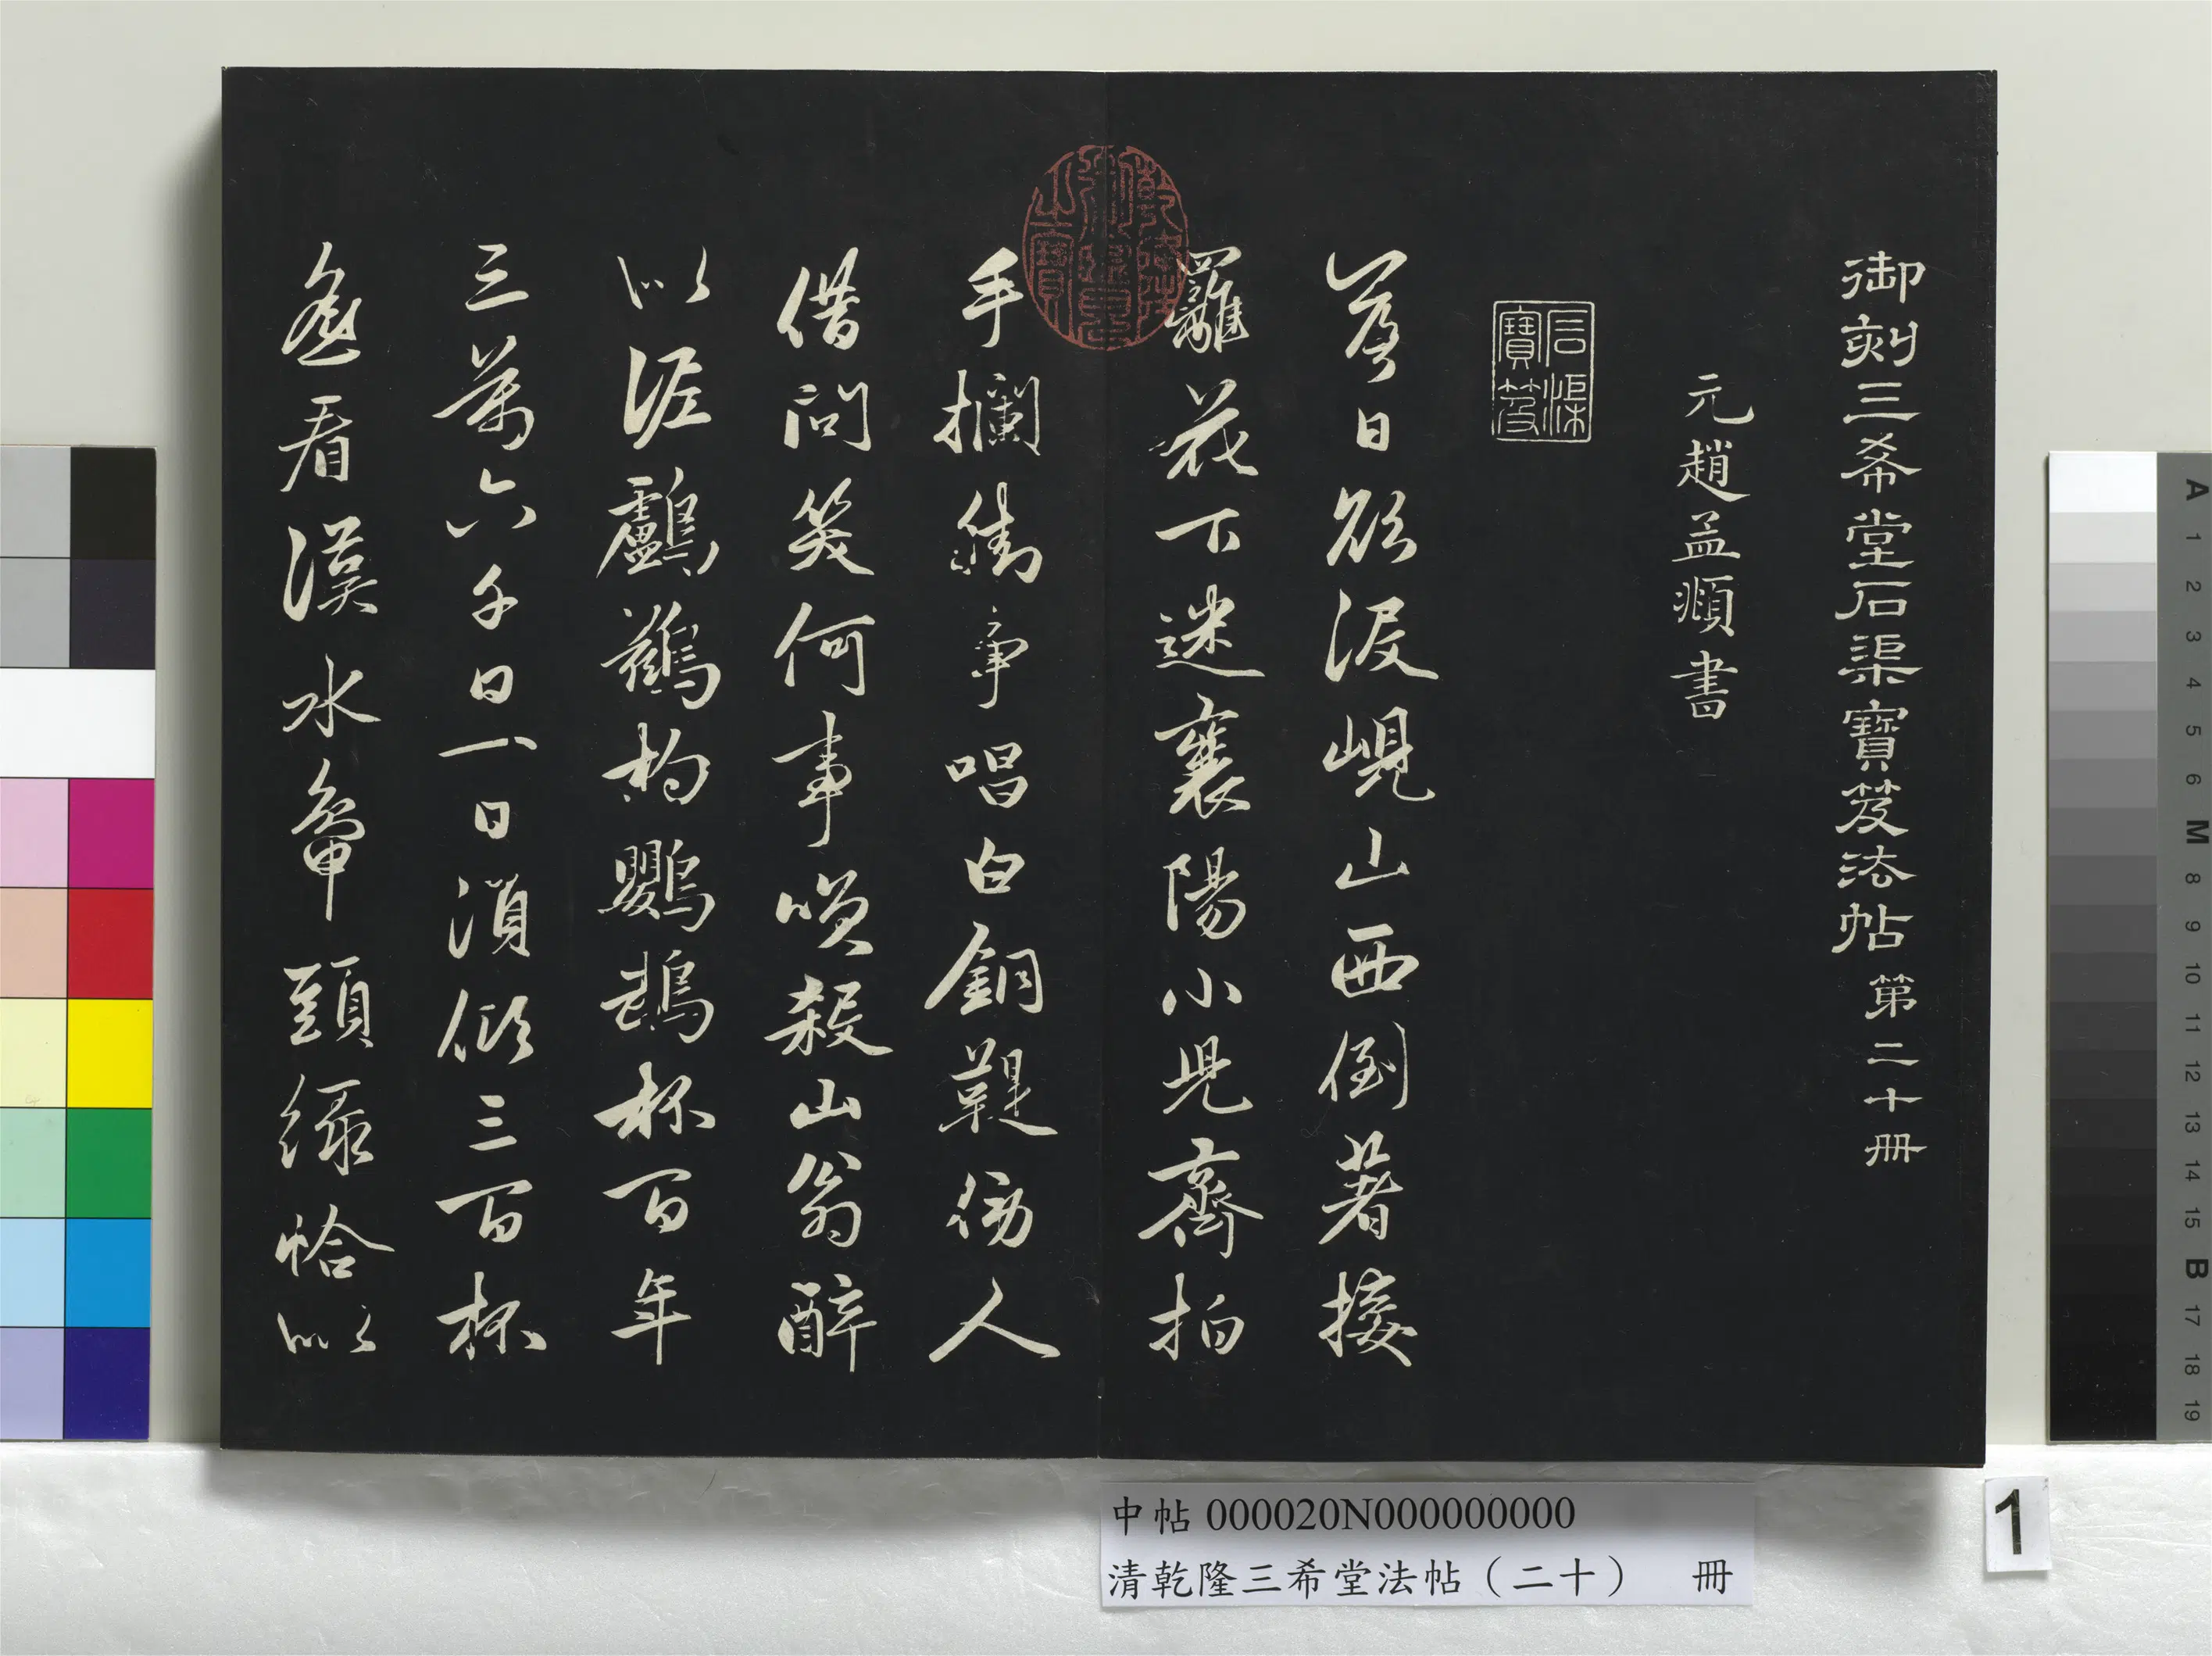 御刻三希堂石渠寶笈法帖 第二十冊
元趙孟頫書
石渠寶笈
落日欲沒峴山西倒著接
䍦花下迷襄陽小兒齊拍
乾隆御覽之寶
手攔街爭唱白銅鞮傍人
借問笑何事笑殺山翁醉
似泥鸕鷀杓鸚鵡杯百年
三萬六千日一日須傾三百杯
遙看漢水鴨頭綠恰似
中帖 000020N000000000
清乾隆三希堂法帖（二十） 冊
1
A 1 2 3 4 5 6 M 8 9 10 11 12 13 14 15 B 17 18 19